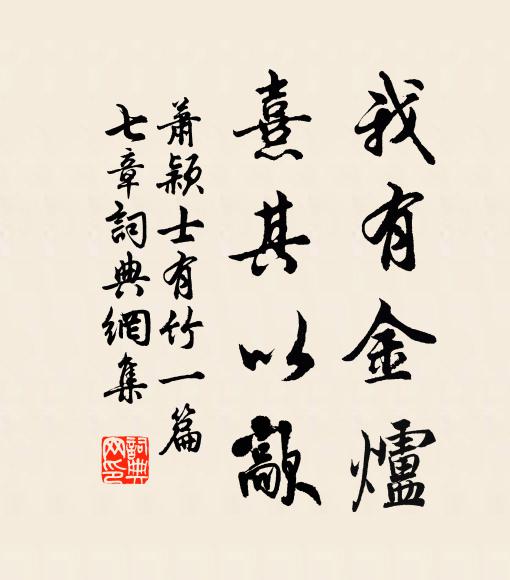 我有金爐
熹其以歊
蕭穎士有竹一篇
七章詞典網集
詞典网印